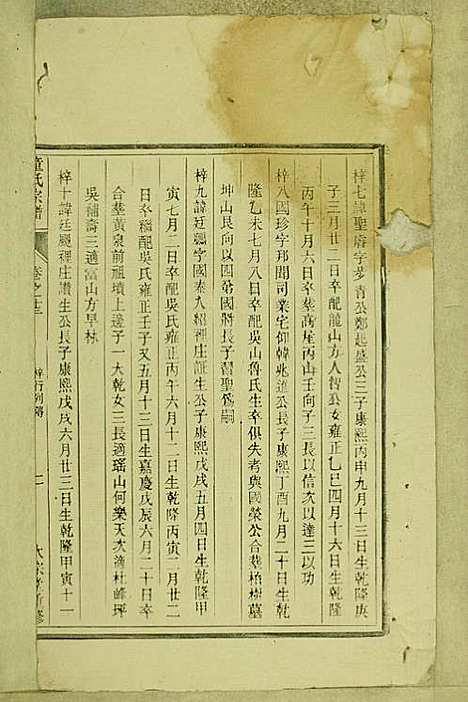 梓七諱聖睿字夢青公鄭起盛公三子康熙丙申九月十三日生乾隆庚
子三月廿二日卒配龍山方人智公女雍正乙巳四月十六日生乾隆
丙午十月六日卒葬萬崖丙山壬向子三長以信次以達三以功
梓八國珍字邦聞司業宅仰韓兆進公長子康熙丁酉九月二十日生乾
隆乙未七月八日卒配吳山魯氏生卒俱失考與國榮公合葬柏樹墓
坤山艮向以四弟國將長子習聖爲嗣
梓九諱廷颺字國泰九紹裡庄証生公子康熙戊戌五月四日生乾隆甲
寅七月二日卒配吳氏雍正丙午六月十二日生乾隆丙寅二月廿二
日卒繼配吳氏雍正壬子又五月十三日生嘉慶戊辰六月二十日卒
合葬黃泉前祖墳上邊子一大乾女三長適瑶山何樂天次適杜峰坪
吳補齋三適富山方早林
梓十諱廷颺理庄讚生公長子康熙戊戌六月廿三日生乾隆甲寅十一
童氏宗譜
卷之廿三
梓行列傳